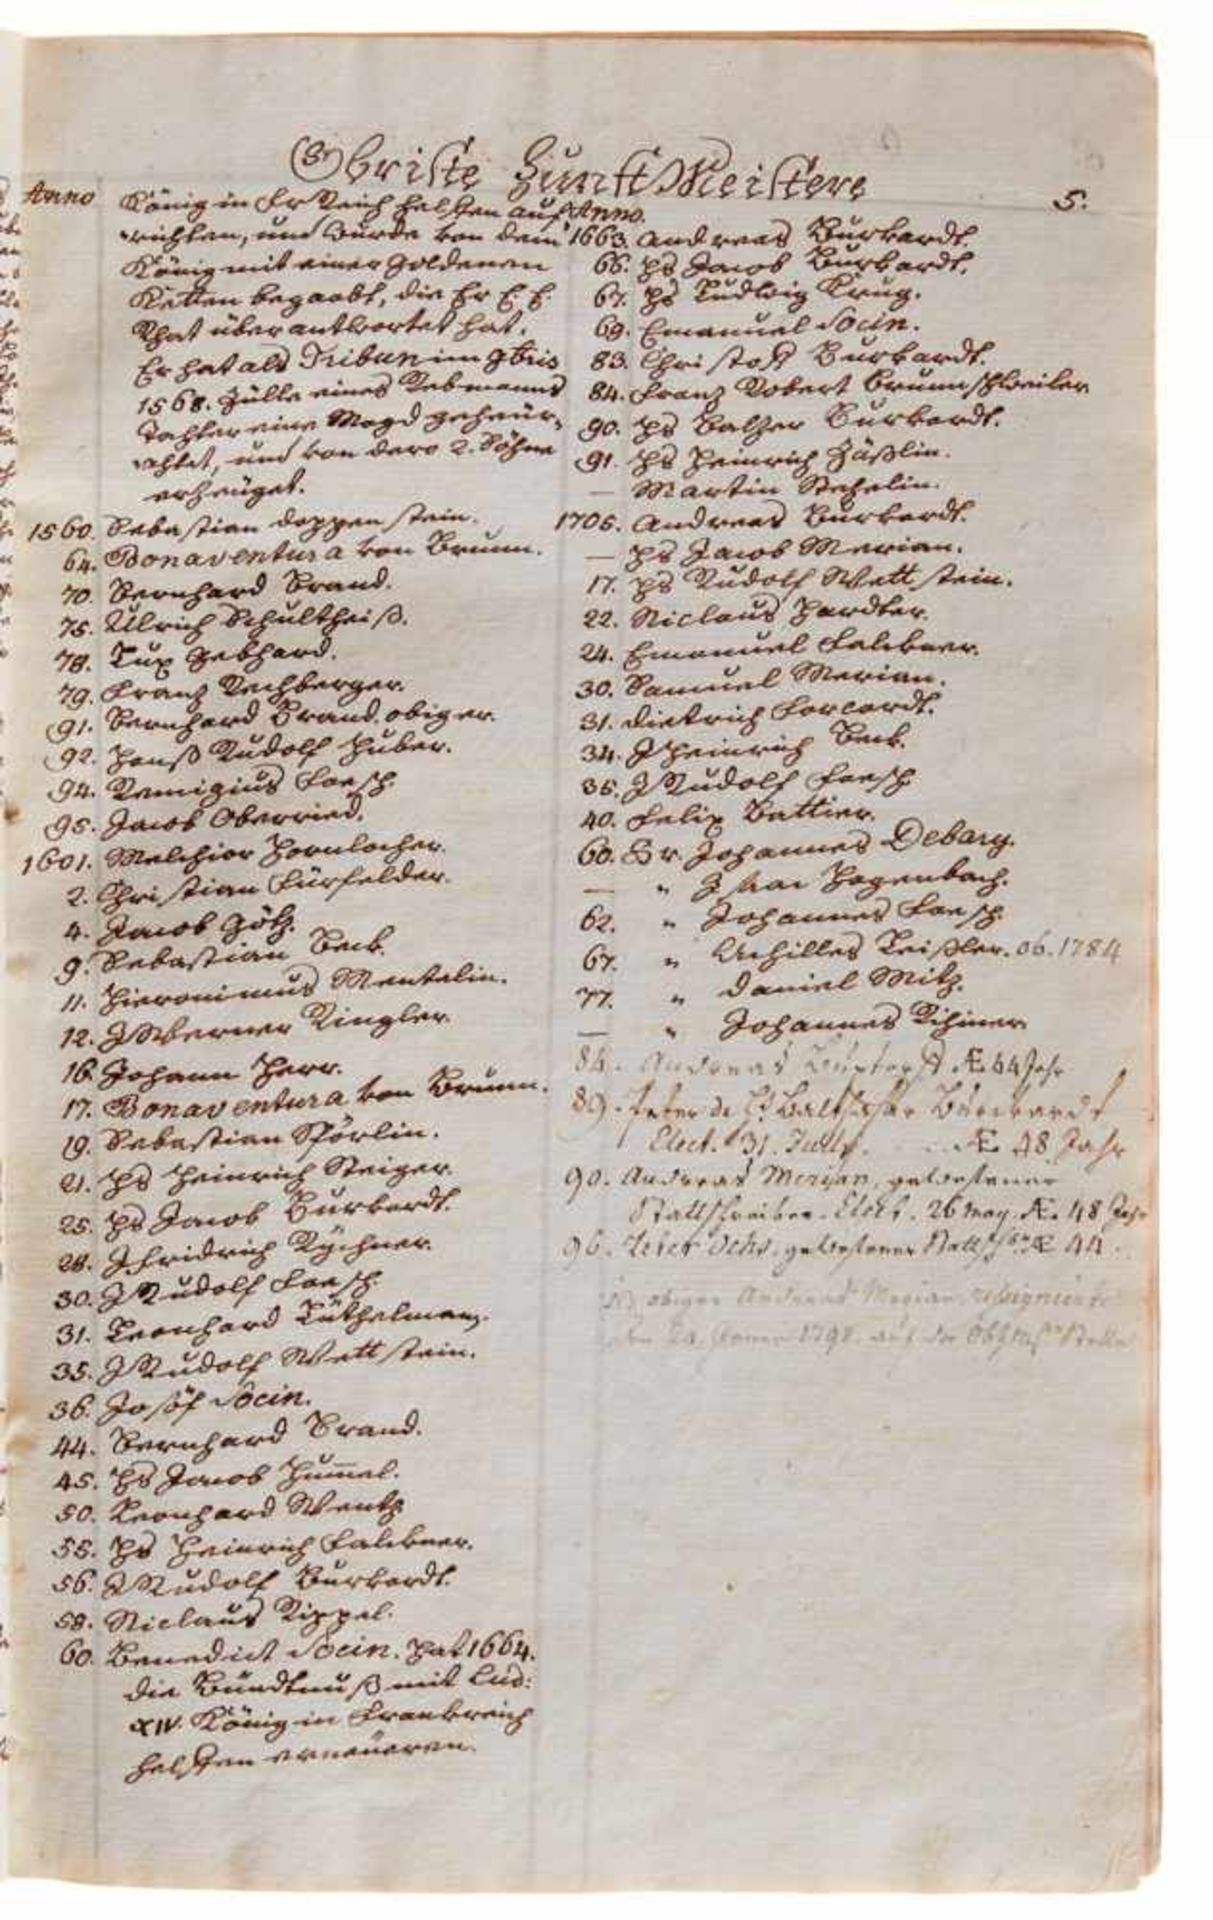 Obriste Zunft Meistere
5.
Anno
König in Fr Reich helffen auf
richten, und wurde von dem
König mit einer goldenen
Ketten begaabt, die Er E. E.
Rhat überantwortet hat.
Er hat als Tribun im 9bris
1568. Zülle eines Rebmanns
Tochter eine Magd geheür-
athtet, und von dero 2. Söhne
erzeüget.
1560. Sebastian Doppenstein.
64. Bonaventura von Brunn.
70. Bernhard Brand.
75. Ulrich Schultheiß.
78. Lux Gebhard.
79. Franz Rechberger.
91. Bernhard Brand. obiger.
92. Hanß Rudolf Huber.
94. Remigius Faesch.
95. Jacob Oberried.
1601. Melchior Hornlocher.
2. Christian Fürfelder.
4. Jacob Götz.
9. Sebastian Beck.
11. Hieronimus Mentelin.
12. J Werner Ringler.
16. Johann Herr.
17. Bonaventura von Brunn.
19. Sebastian Spörlin.
21. Hs Heinrich Steiger.
25. Hs Jacob Burkardt.
28. J Fridrich Rÿhner.
30. J Rudolf Faesch.
31. Leonhard Lüthelmann.
35. J Rudolf Wettstein.
36. Josöf Socin.
44. Bernhard Brand.
45. Hs Jacob Hum̄el.
50. Leonhard Wentz.
55. Hs Heinrich Falckner.
56. J Rudolf Burkardt.
58. Niclaus Rippel.
60. Benedict Socin. Hat 1664.
die Bündtnuß mit Lud:
XIV. König in Frankreich
helffen erneueren.
Anno.
1663. Andreas Burkardt.
66. Hs Jacob Burkardt.
67. Hs Ludwig Krug.
69. Emanuel Socin.
83. Christoff Burkardt.
84. Franz Robert Brunnschweiler
90. Hs Balzer Burkardt.
91. Hs Heinrich Zäßlin.
— Martin Stehelin.
1705. Andreas Burkardt.
— Hs Jacob Merian.
17. Hs Rudolf Wettstein.
22. Niclaus Harder.
24. Emanuel Falckner.
30. Samuel Merian.
31. Dietrich Forcardt.
34. J Heinrich Beck.
35. J Rudolf Faesch.
40. Felix Battier.
60. Hr. Johannes Debary.
— " Isaac Hagenbach.
62. " Johannes Faesch.
67. " Achilles Leißler. ob. 1784
77. " Daniel Mitz.
— " Johannes Rihiner
84. Andreas Buxtorff Æ. 44 Jahr
89. Peter de Hr Balthasar Burckardt
Elect. 31. Jully. Æ 48 Jahr
90. Andreas Merian, gewesener
Stattschreiber. Elect. 26 May. Æ. 48 Jahr
96. Peter Ochs, gewesener Stattschr. Æ 44.
obiger Andreas Merian resignierte
den 20. Jenner 1798. auf der Obstzmstr Stelle